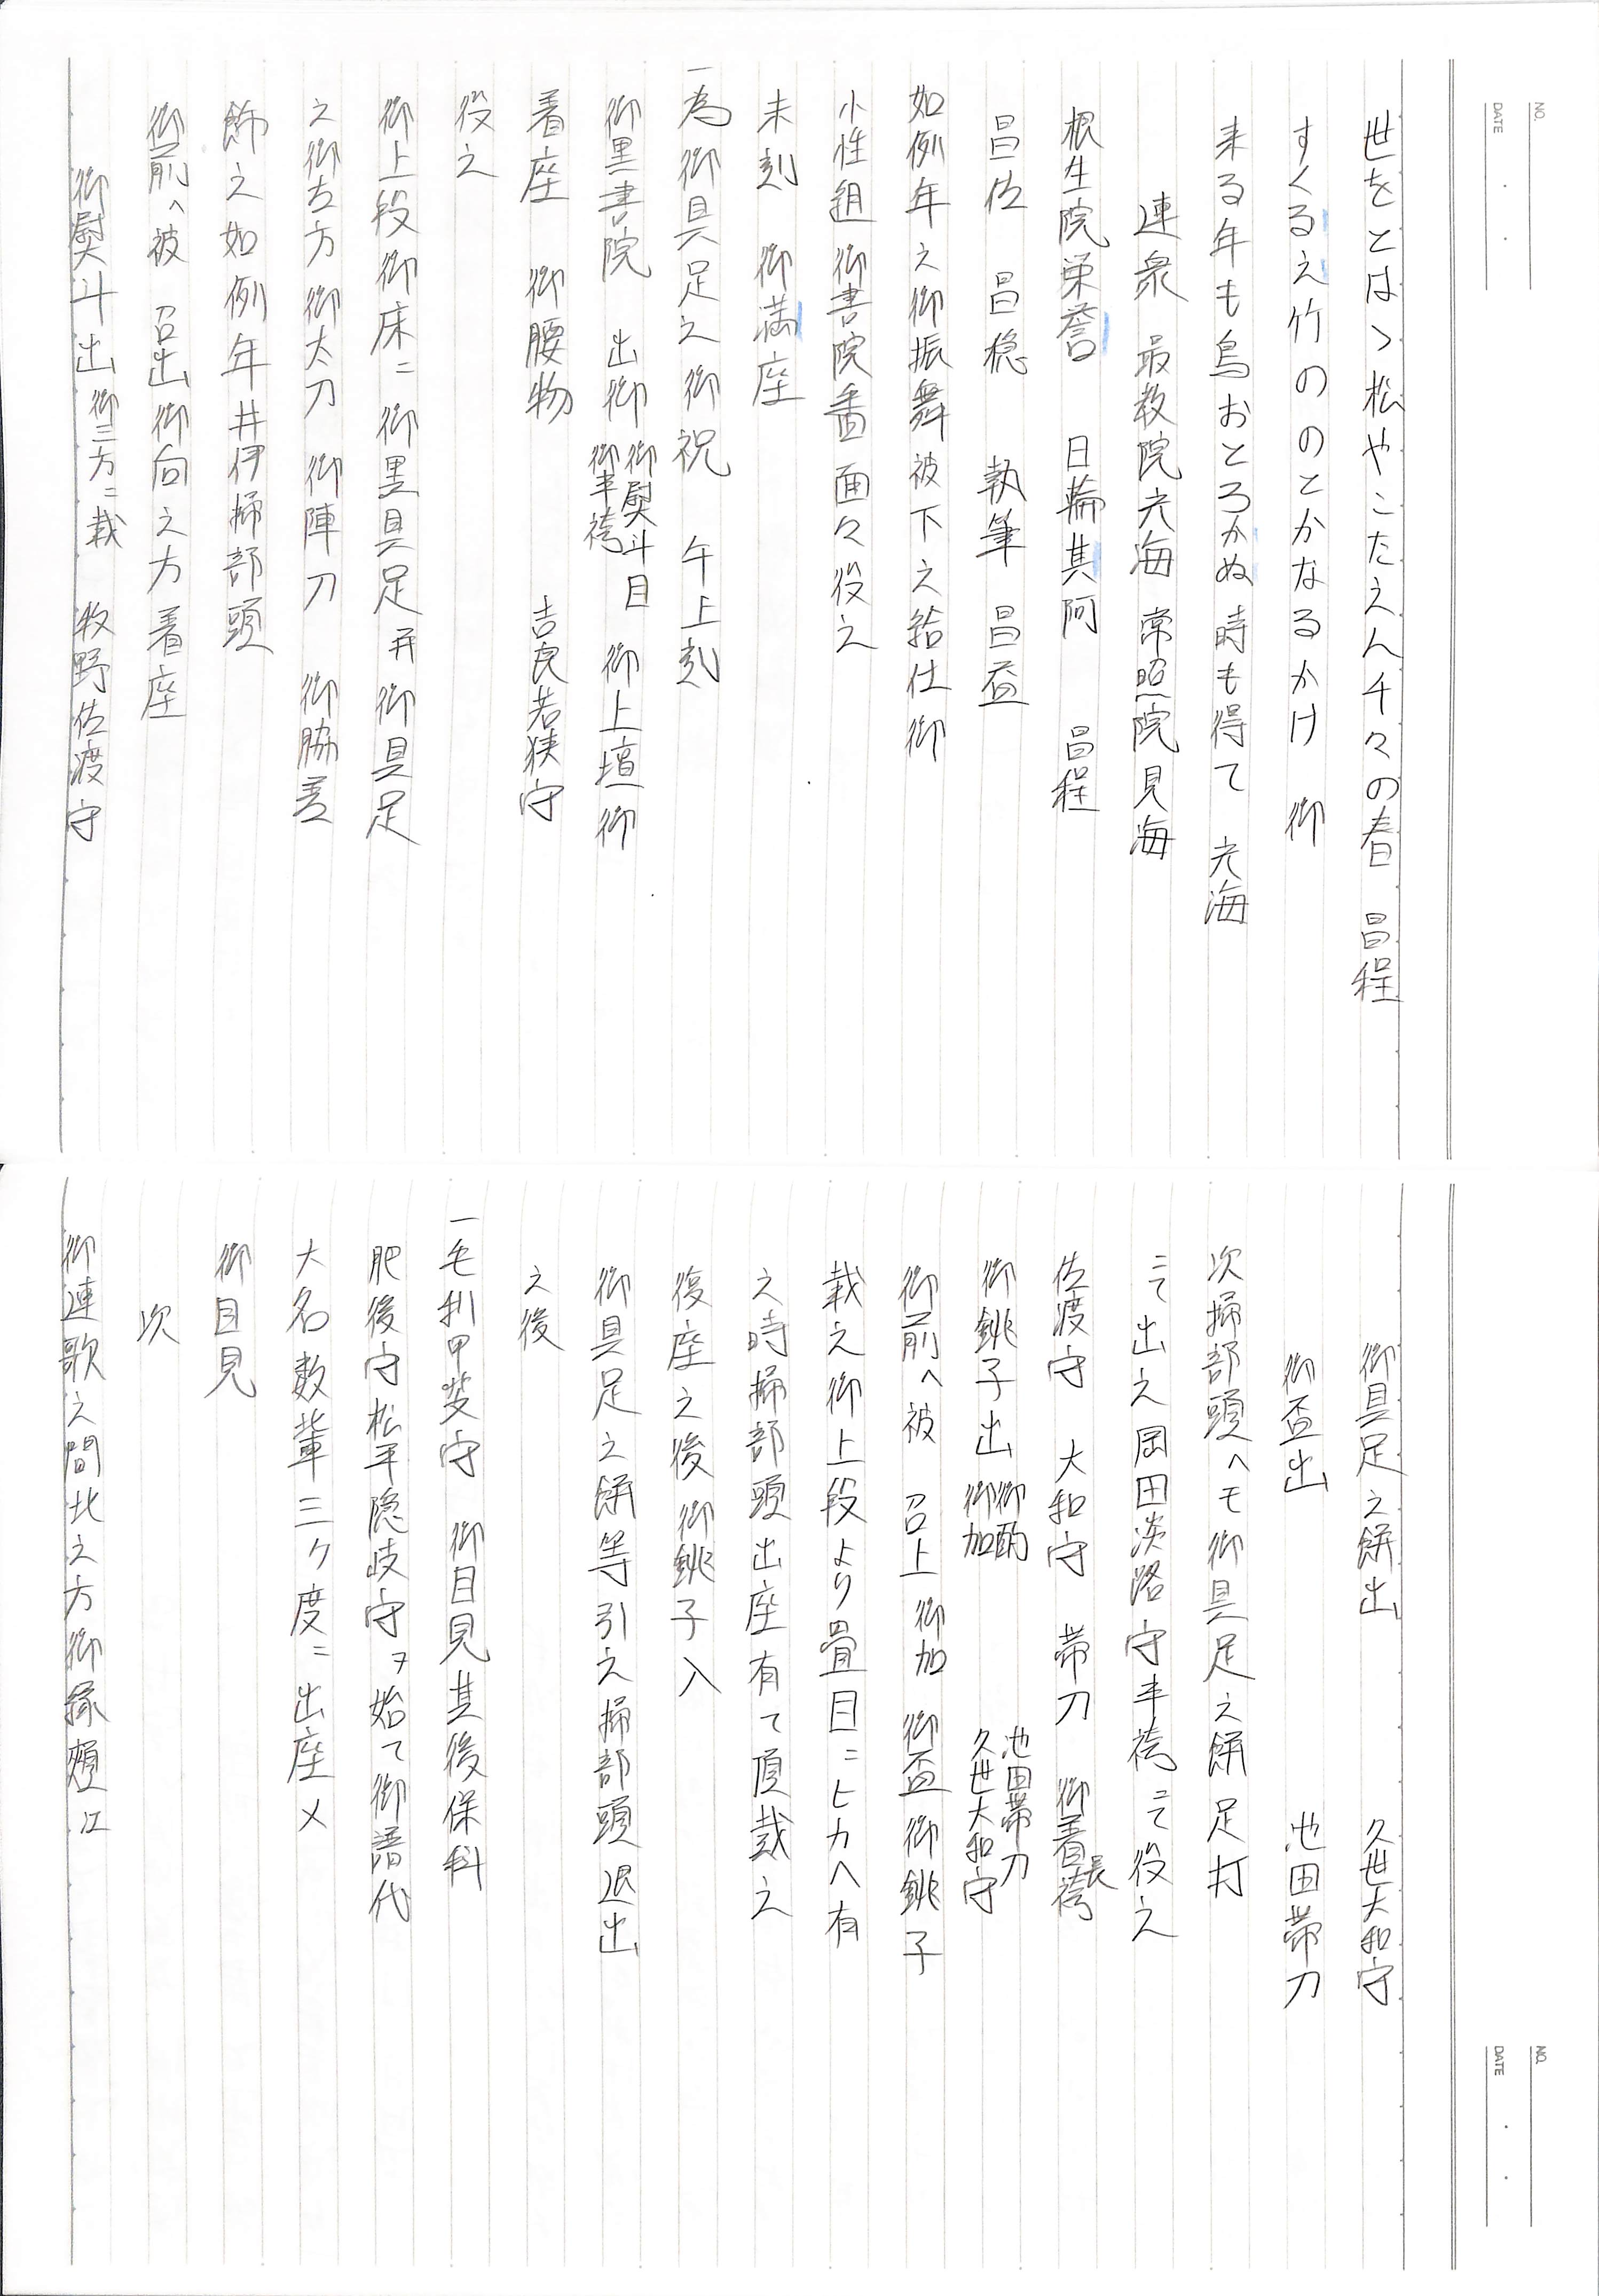 NO.
DATE
世をとはゝ松やこたえん千々の春　昌程
すくるえ竹ののとかなるかけ　御
来る年も鳥おとろかぬ時も得て　光海
連衆　最教院光海　常照院見海
根生院栄誉　日輪其阿　昌程
昌佐　昌穏　執筆　昌益
如例年之御振舞被下之給仕御
小性組御書院番面々役之
未刻　御満座
一為御具足之御祝　午上刻
御黒書院　出御　御熨斗目　御半袴　御上壇御
着座　御腰物　吉良若狭守
役之
御上段御床ニ御黒具足并御具足
之御右方御太刀　御陣刀　御脇差
飾之如例年井伊掃部頭
御前へ被　召出御向之方着座
御熨斗出　御三方ニ載　牧野佐渡守
御具足之餅出　久世大和守
御盃出　池田帯刀
次掃部頭へモ御具足之餅足打
ニて出之岡田淡路守半袴ニて役之
佐渡守　大和守　帯刀　御着長袴
御銚子出　御酌　御加　池田帯刀　久世大和守
御前へ被　召上御加　御盃御銚子
載之御上段より畳目ニヒカヘ有
之時掃部頭出座有て頂戴之
復座之後御銚子入
御具足之餅等引之掃部頭退出
之後
一毛利甲斐守　御目見其後保科
肥後守松平隠岐守ヲ始て御譜代
大名数輩三ケ度ニ出座〆
御目見
次
御連歌之間北之方御縁頬江
NO.
DATE